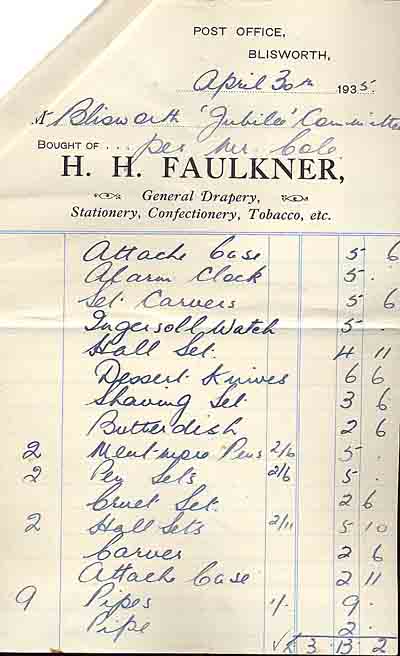 POST OFFICE,
BLISWORTH,
April 30th 1935.
M Blisworth 'Jubilee' Committee
BOUGHT OF ... per Mr. Cole
H. H. FAULKNER,
General Drapery,
Stationery, Confectionery, Tobacco, etc.
Attache Case 5 6
Alarm Clock 5 .
Set Carvers 5 6
Ingersoll Watch 5 .
Hall Set. 4 11
Dessert Knives 6 6
Shaving Set 3 6
Butterdish 2 6
2 Mentmore Pens 2/6 5 .
2 Pen Sets 2/6 5 .
Cruet Set. 2 6
2 Hall Sets 2/11 5 10
Carver 2 6
Attache Case 2 11
9 Pipes 1/. 9 .
Pipe 2 .
£ 3 13 2